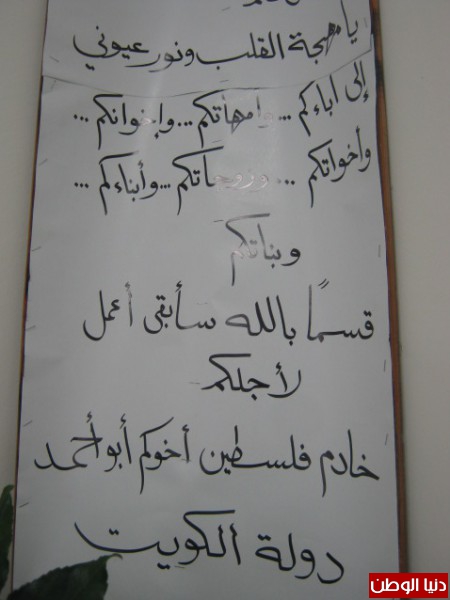 يا مهجة القلب ونور عيوني
إلى آباءكم ... وامهاتكم ... وإخوانكم ...
وأخواتكم ... وزوجاتكم ... وأبناءكم ...
وبناتكم
قسمًا بالله سأبقى أعمل
لأجلكم
خادم فلسطين أخوكم أبو أحمد
دولة الكويت
دنيا الوطن